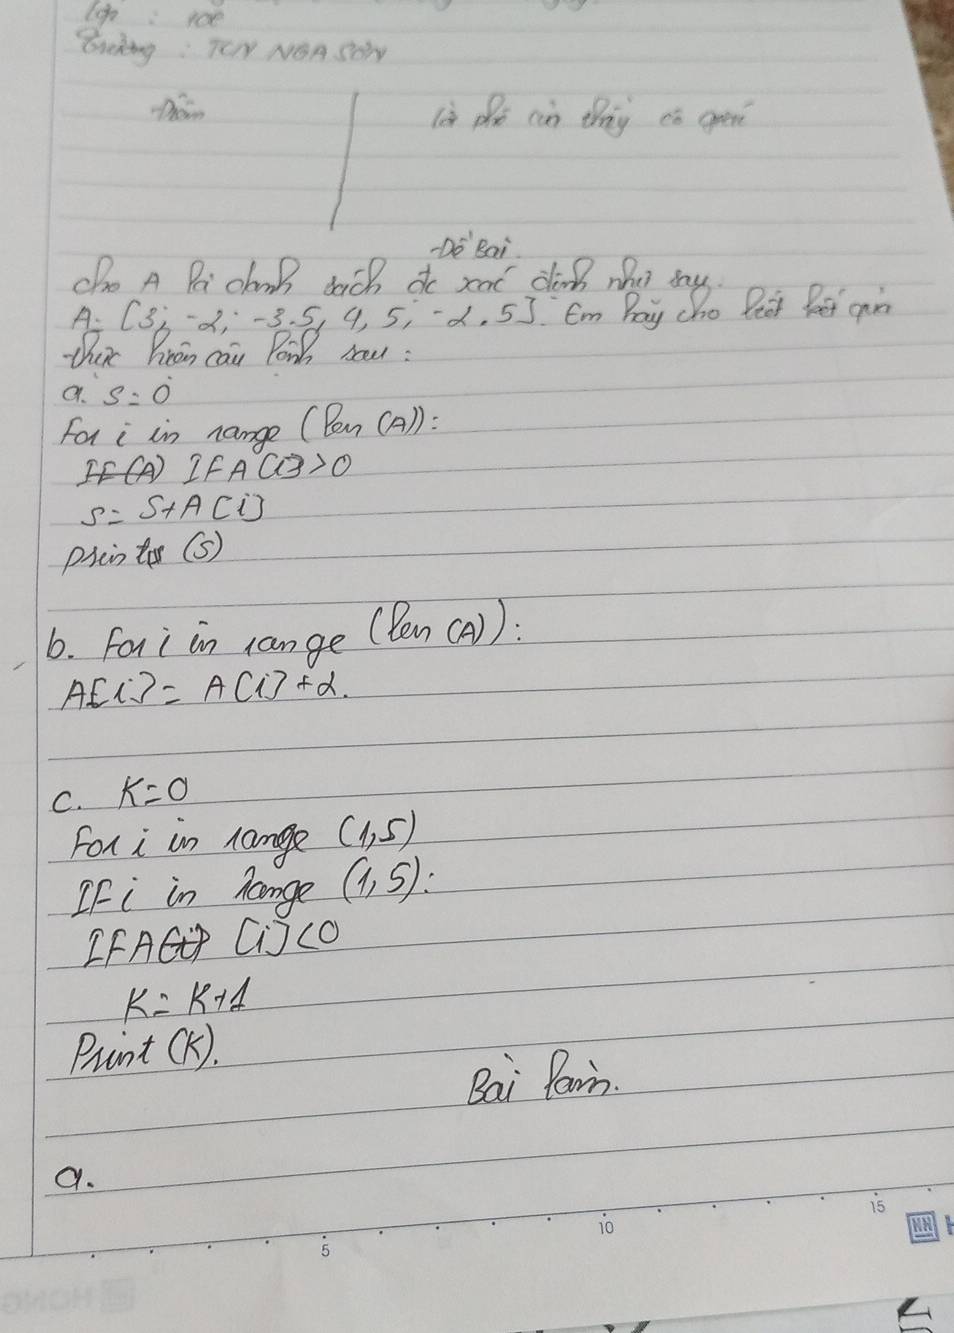 Lớp : 10E
Trường : TCN NGA SƠN
Điểm
Lời phê của thầy cô
Đề Bài.
cho A là danh sách đc xác định như sau.
A= [3; -2; -3.5, 4, 5, -2.5]. Em hãy cho biết kết quả
thực hiện câu lệnh sau :
a. S=0
For i in range (len (A)):
IF A[i]>0
S= S+A[i]
print (S)
b. For i in range (len (A)):
A[i] = A[i] +2.
c. K=0
For i in range (1,5)
IF i in range (1,5):
IF A [i]<0
K= K+1
Print (K).
Bài làm.
a.
5 10 15